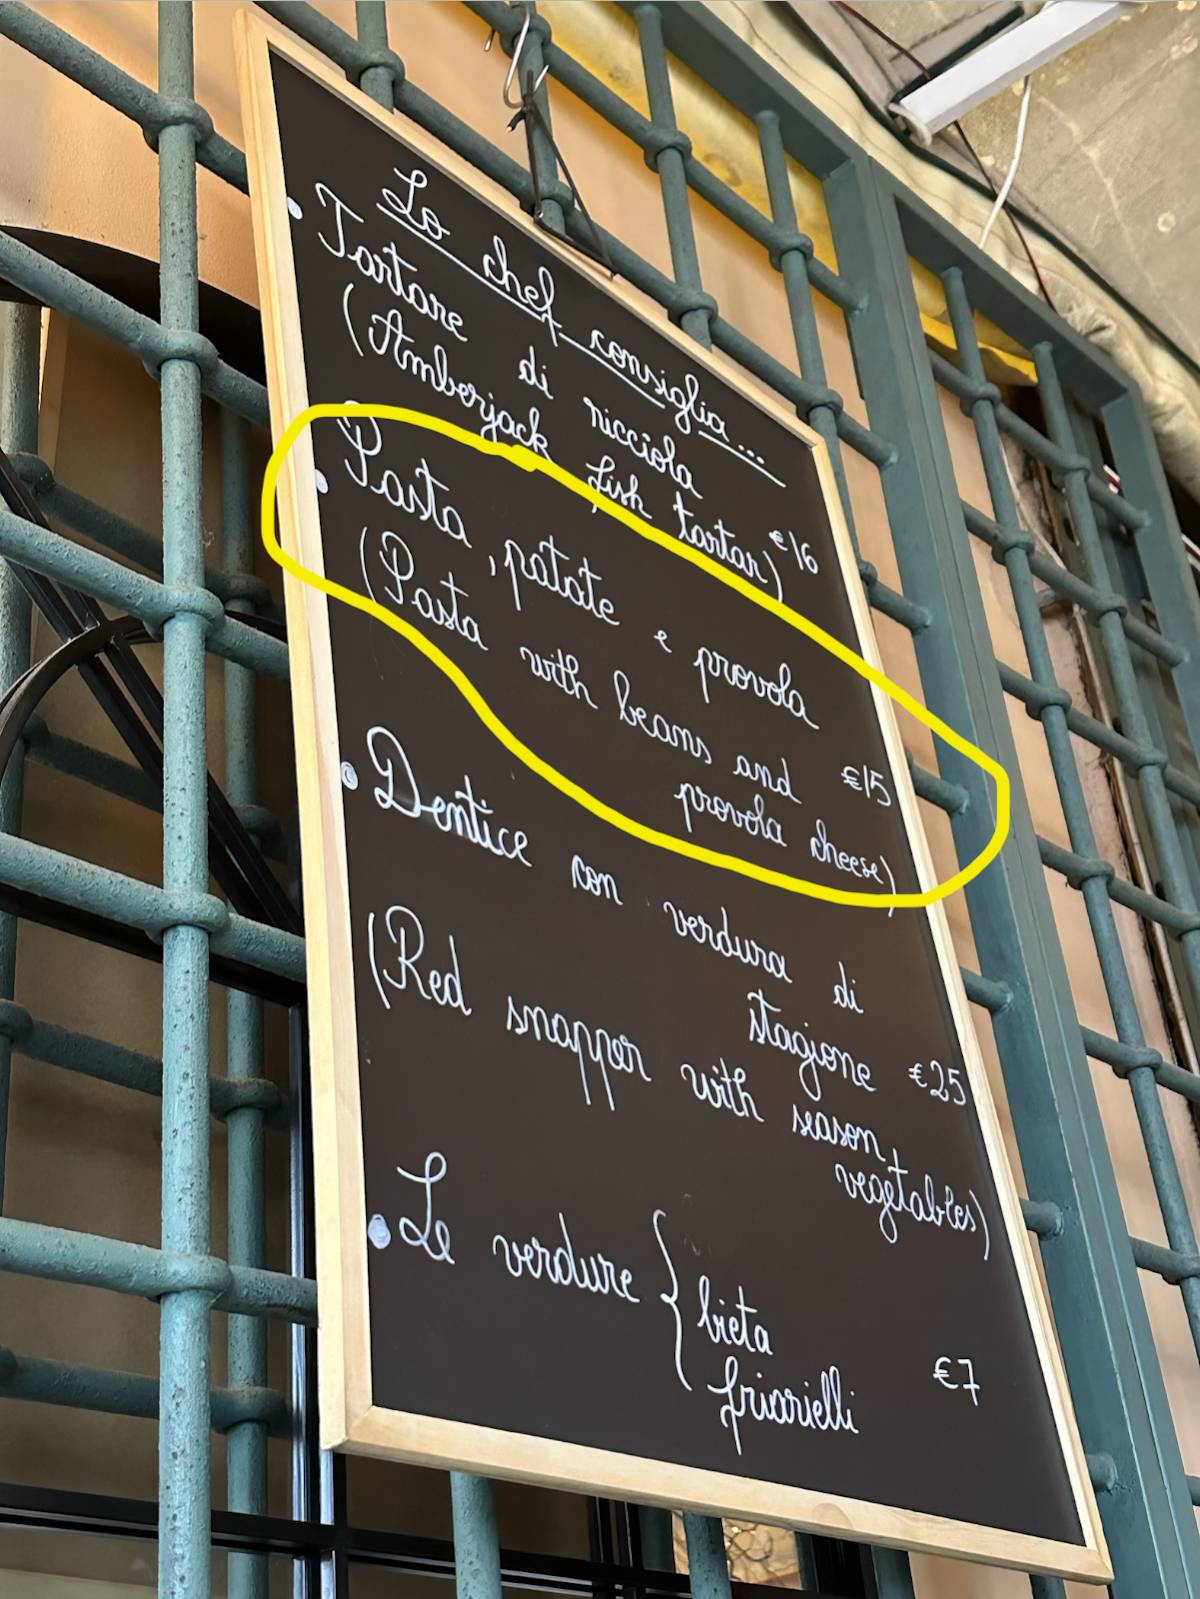 Lo chef consiglia...
• Tartare di ricciola
(Amberjack fish tartar) €16
• Pasta, patate e provola
(Pasta with beans and €15
provola cheese)
• Dentice con verdura di
stagione €25
(Red snapper with season
vegetables)
• Le verdure { bieta
friarielli €7